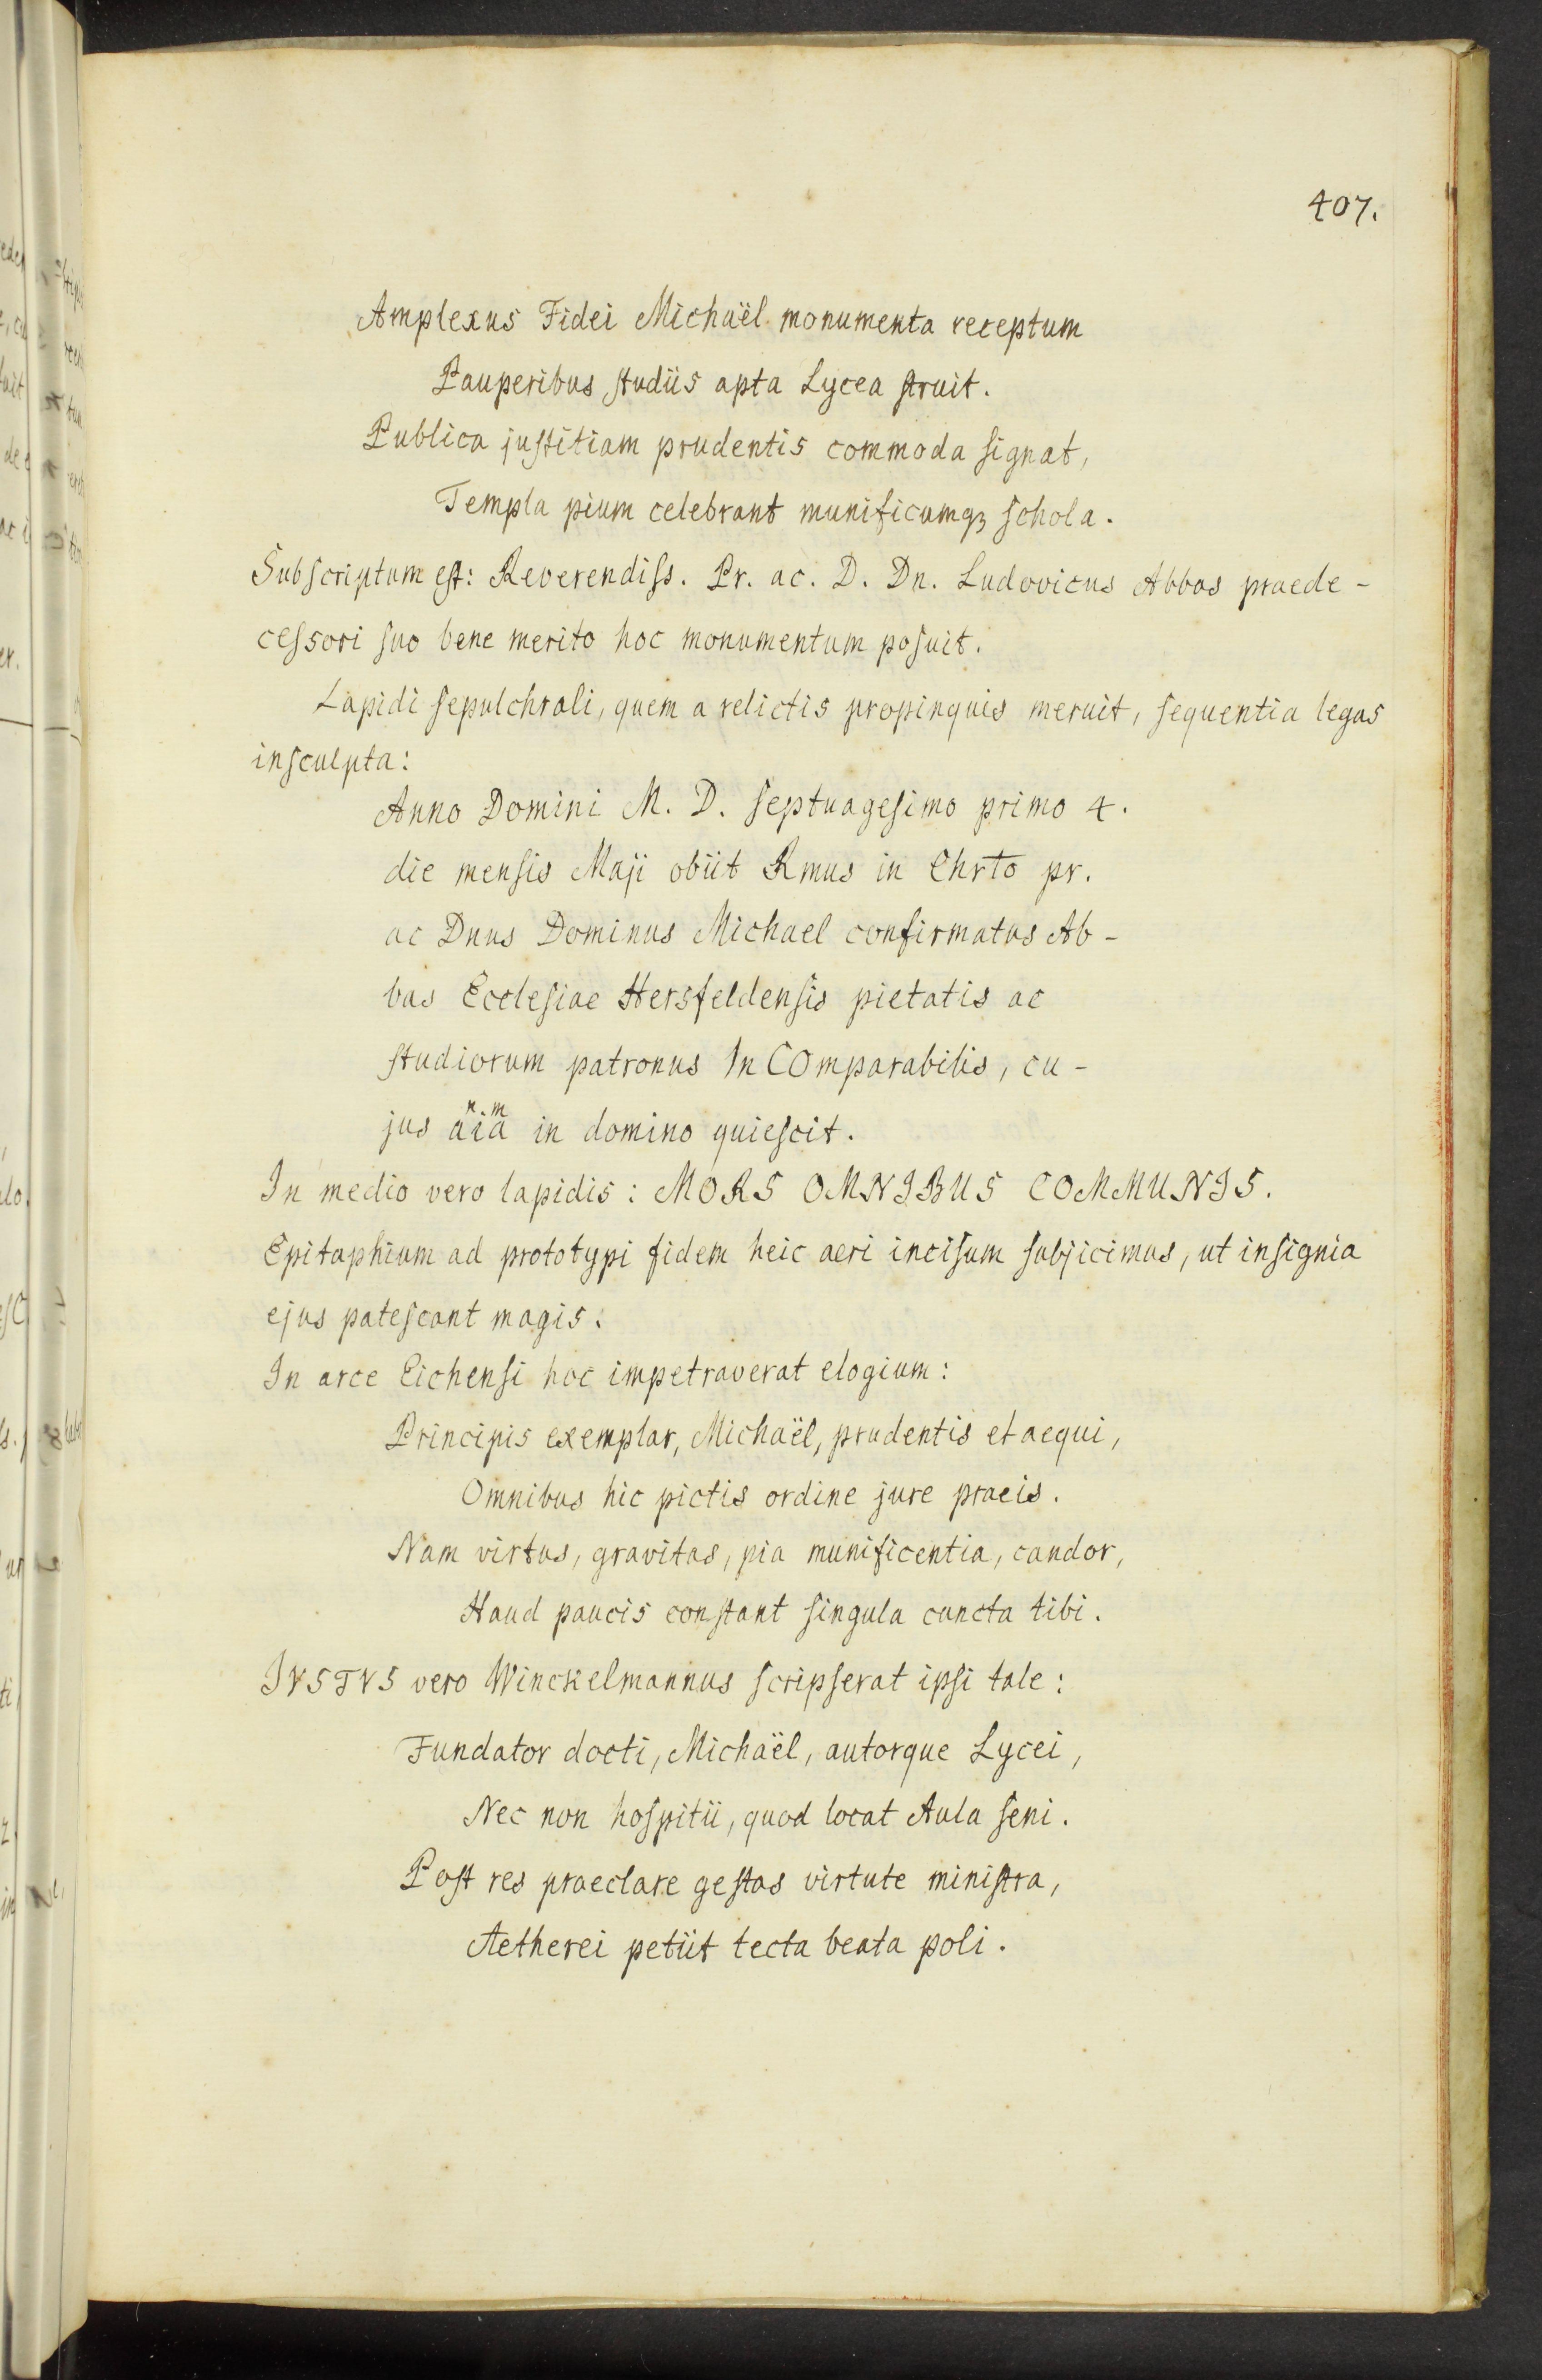 407.
Amplexus Fidei Michaël monumenta receptum
Pauperibus ſtudiis apta Lycea ſtruit.
Publica juſtitiam prudentis commoda ſignat,
Templa pium celebrant munificumqꝫ ſchola.
Subſcriptum eſt: Reverendiſs. Pr. ac. D. Dn. Ludovicus Abbas praede-
ceſsori ſuo bene merito hoc monumentum poſuit.
Lapidi ſepulchrali, quem a relictis propinquis meruit, ſequentia legas
inſculpta:
Anno Domini M. D. ſeptuageſimo primo 4.
die menſis Maji obiit Rmus in Chrto pr.
ac Dnus Dominus Michael confirmatus Ab-
bas Eccleſiae Hersfeldenſis pietatis ac
ſtudiorum patronus InCOmparabilis, cu-
jus aia n.m in domino quieſcit.
In medio vero lapidis: MORS OMNIBUS COMMUNIS.
Epitaphium ad prototypi fidem heic aeri inciſum ſubjicimus, ut inſignia
ejus pateſcant magis:
In arce Eichenſi hoc impetraverat elogium:
Principis exemplar, Michaël, prudentis et aequi,
Omnibus hic pictis ordine jure praeis.
Nam virtus, gravitas, pia munificentia, candor,
Haud paucis conſtant ſingula cuncta tibi.
IVSTVS vero Winckelmannus ſcripſerat ipſi tale:
Fundator docti, Michaël, autorque Lycei,
Nec non hoſpitii, quod locat Aula ſeni.
Poſt res praeclare geſtas virtute miniſtra,
Aetherei petiit tecta beata poli.